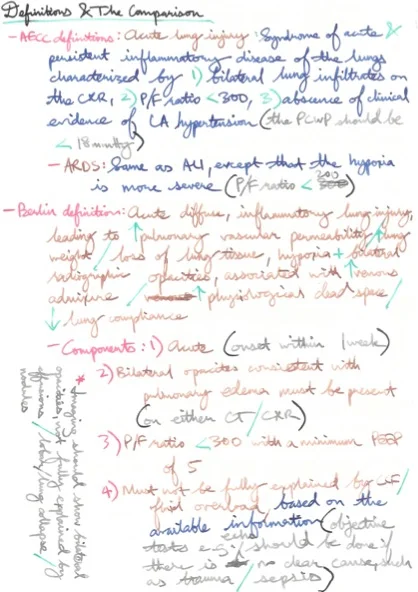 Definitions & The Comparison
- AECC definitions: Acute lung injury: Syndrome of acute &
persistent inflammatory disease of the lungs
characterized by 1) Bilateral lung infiltrates on
the CXR, 2) P/F ratio <300, 3) absence of clinical
evidence of LA hypertension (the PCWP should be
< 18 mmHg)
- ARDS: Same as ALI, except that the hypoxia
is more severe (P/F ratio < 200)
- Berlin definition: Acute diffuse, inflammatory lung injury,
leading to ↑ pulmonary vascular permeability / ↑ lung
weight / loss of lung tissue, hypoxia + bilateral
radiographic opacities, associated with ↑ venous
admixture / ↑ physiological dead space /
↓ lung compliance
- Components: 1) Acute (onset within 1 week)
2) Bilateral opacities consistent with
pulmonary edema must be present
(on either CT / CXR)
3) P/F ratio <300 with a minimum PEEP
of 5
4) Must not be fully explained by CF /
fluid overload, based on the
available information (objective
tests e.g. echo / should be done if
there is no clear cause, such
as trauma / sepsis)
* Imagine should show bilateral
opacities, not fully explained by
effusions / lobar / lung collapse /
nodules